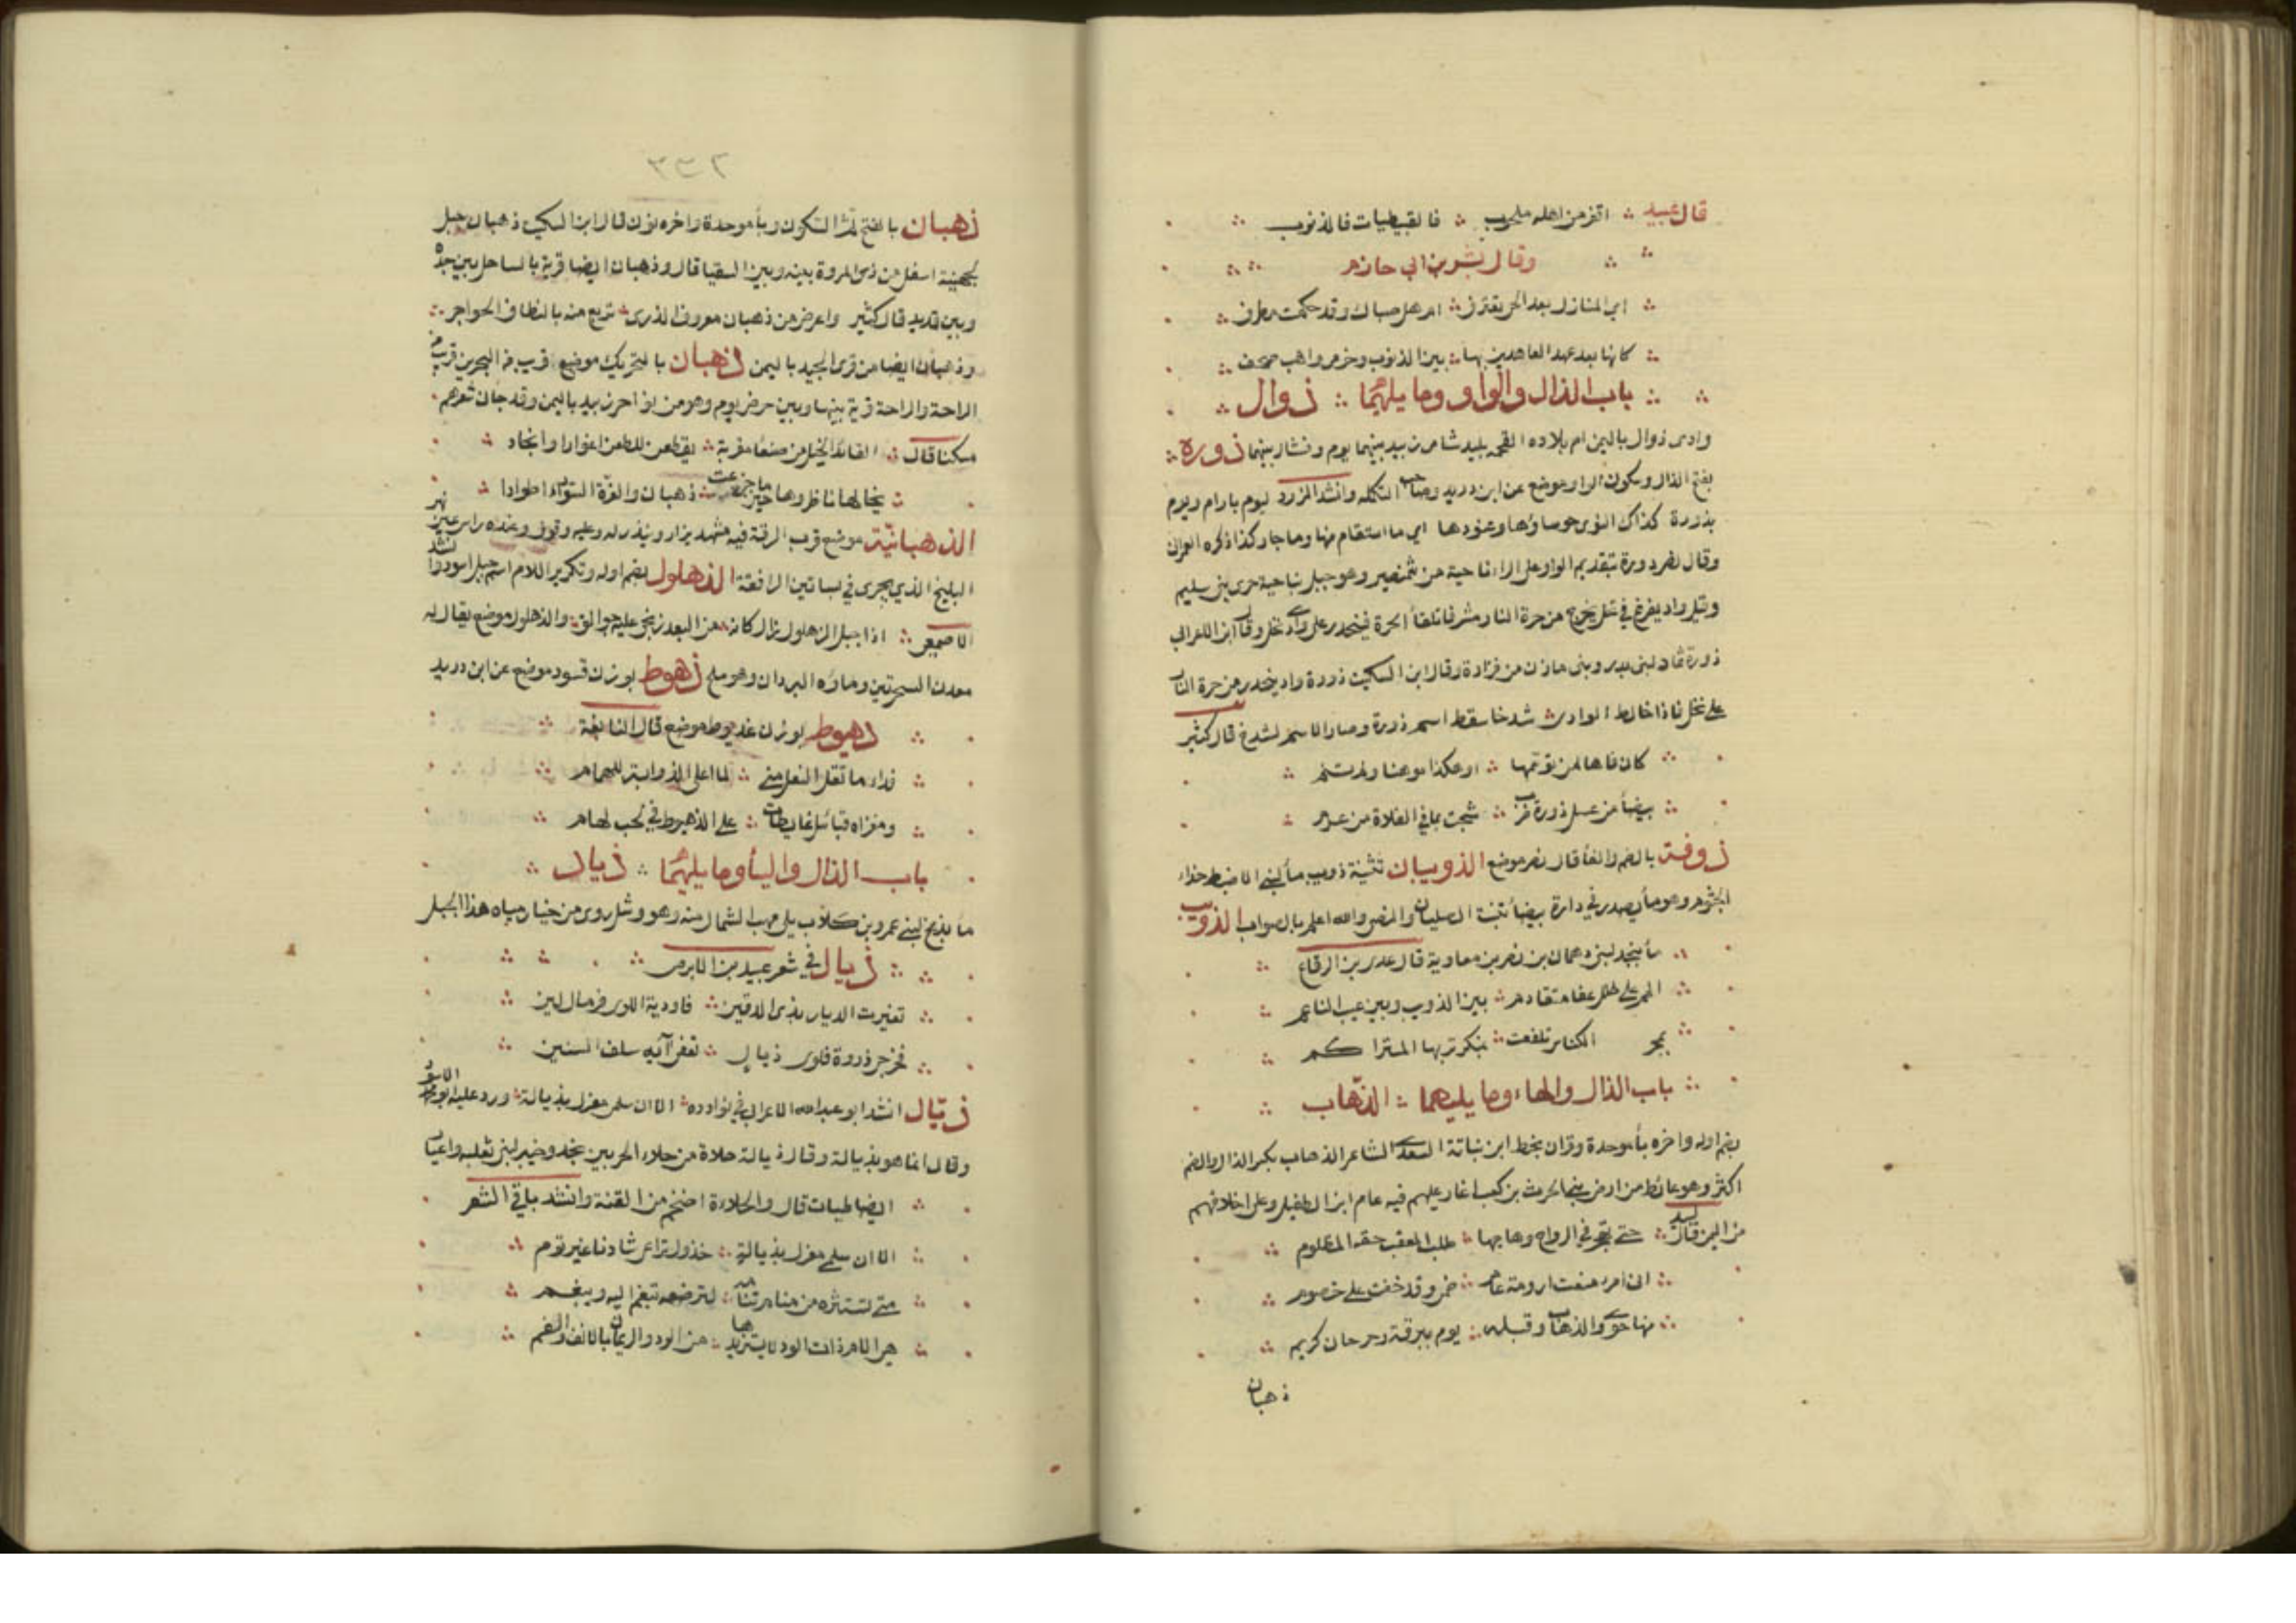 قال عبيد ؞ اقفر من اهله ملحوب ؞ فالقبطيات فالذنوب ؞
وقال بشر بن ابي حازم
اي المنازل بعد الحي تعترف ؞ ام هل صباك وقد حكمت مطرف
كانها بعد عهد العاهدين بها ؞ بين الذنوب وحزمي واهب صحف
باب الذال والواو وما يليهما ؞ ذوال
وادى ذوال باليمن ام بلاده القحمه بليد شامى زبيد بينهما يوم وفشال بينهما ذوره
بفتح الذال وسكون الواو موضع عن ابن دريد وصاحب التكمله وانشد المزرد ليوم بارام ويوم
بذورة كذاك النوى حوساوها وعنودها اي ما استقام منها وما جار كذا ذكره العمرانى
وقال نصر دورة بتقديم الواو على الراء ناحية من شمنصير وهو جبل بناحية حرة بنى سليم
وقيل واد يفرغ في نخل يخرج من حرة النار مشرفا تلقاء الحرة فينحدر على وادى نخل وقال ابن الاعرابي
ذورة ثماد لبنى بدر وبنى مازن من فزارة وقال ابن السكيت ذورة واد ينحدر من حرة النار
على نخل فاذا خالط الوادى شدخا سقط اسم ذورة وصار الاسم لشدخ قال كثير
كان فاها لمن توسمها ؞ او هكذا موهنا ولم تنم
بيضاء من عسل ذورة ضرب ؞ شجت بما في الفلاة من عرم
ذوفة بالضم والفاء قال نصر موضع الذويبان تثنية ذويب ماءان لبنى الاضبط حذاء
الجثوم وهو ماء يصدر في دارة بيضاء تنبت الصليان والنصى والله اعلم بالصواب الذويب
ماء بنجد لبنى دهمان بن نصر بن معاوية قال عدي بن الرقاع
المم على طلل عفا متقادم ؞ بين الذويب وبين غيب الناعم
بمجر الكناس تلفعت ؞ بنكر تربها المتراكم
باب الذال والهاء وما يليهما ؞ الذهاب
بضم اوله واخره باء موحدة وقران بخط ابن نباتة السعدى الشاعر الذهاب بكسر الذال والضم
اكثر وهو غائط من ارض بنى الحرث بن كعب اغار عليهم فيه عامر ابن الطفيل وعلى احلافهم
من اليمن قال لبيد ؞ حتى تهجر في الرواح وهاجها ؞ طلب المعقب حقه المظلوم
انى امرء منعت ارومة عامر ؞ ضيمى وقد خفت على خصوم
منها حوى والذهاب وقبله ؞ يوم ببرقة رحرحان كريم
ذهبان
٣٣٢
ذهبان بالفتح ثم السكون وباء موحدة واخره نون قال ابن السكيت ذهبان جبل
لجهينة اسفل من ذى المروة بينه وبين السقيا قال وذهبان ايضا قرية بالساحل بين جدة
وبين قديد قال كثير واعرض من ذهبان معروف الذرى ؞ تريع منه بالنطاف الحواجر
وذهبان ايضا من قرى الجند باليمن ذهبان بالتحريك موضع قريب من البحرين قريب من
الراحة والراحة قرية بينها وبين حرض يوم وهو من نواحى زبيد باليمن وقد جاء في شعرهم
مسكنا قال ؞ القائد الخيل من صنعاء مقربة ؞ يقطعن للطعن اغوارا وانجاد
يخالها ناظروها حين ما جزعت ؞ ذهبان والغرة السوداء اطوادا
الذهبانية موضع قرب الرقة فيه مشهد يزار وينذر له وعليه وقوف وعنده راس عين نهر
البليخ الذي يجرى في بساتين الرافقة الذهلول بضم اوله وتكرير اللام اسم جبل اسود وانشد
الاصمعى ؞ اذا جبل الذهلول زال كانه من البعد زنجى عليه جوالق ؞ والذهلول موضع يقال له
معدن الشجرتين وماؤه البردان وهو ملح ذهوط بوزن قسود موضع عن ابن دريد
ذهيوط بوزن عذيوط موضع قال النابغة
فداء ما تقل النعل منى ؞ لما اعلى الذوابة للهمام
ومغزاه قبائل غائظات ؞ على الذهيوط في لجب لهام
باب الذال والياء وما يليهما ؞ ذيال
ماء بذبح لبنى عمرو بن كلاب يلى مهب الشمال منه وهو وشل روى من خيار مياه هذا الجبل
ذيال في شعر عبيد بن الابرص
تغيرت الديار بذى الدفين ؞ فاودية اللوى فرمال لين
فخرجى ذروة فلوى ذيال ؞ تعفى آيه سلف السنين
ذيال انشد ابو عبد الله الاعرابي في نوادره ؞ الا ان سلمى مغزل بذيالة ؞ ورد عليه ابو محمد الاسود
وقال انما هو بذيالة وقال ذيالة خلاة من خلاء الحربين نجد وخيبر لبنى ثعلبه واعيان
ايضا طيبات قال والحلاءة اضخم من القنة وانشد باقى الشعر
الا ان سلمى مغزل بذيالة ؞ خذول تراعى شادنا غير توم
متى تستثره من منام ترتنامه ؞ لترضعه تبغم اليه ويبغم
هي الام ذات الود لا يستزيدها ؞ من الود والرئمان بالانف والفم